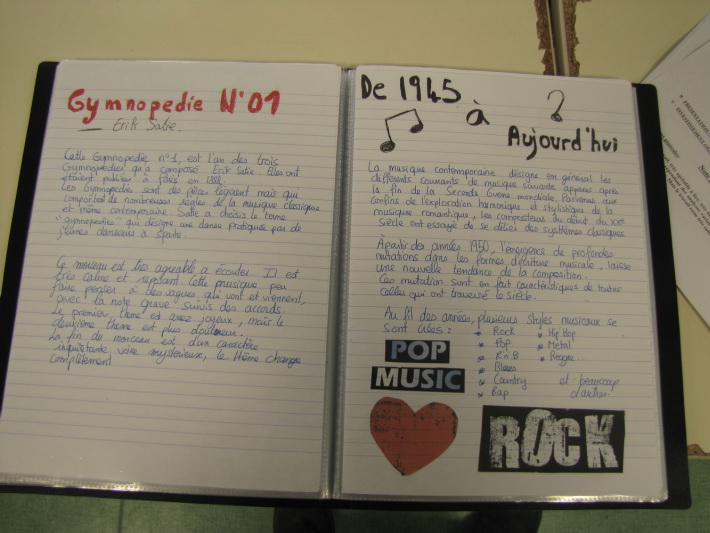 Gymnopedie N°01
Erik Satie.
Cette Gymnopédie n°1, est l'un des trois
Gymnopédies qu'a composé Erik Satie. Elles ont
étaient publiées à Paris en 1888.
Les Gymnopédies sont des pièces légères mais qui
comportes de nombreuses règles de la musique classique
et même contemporaine. Satie a choisis le terme
"gymnopédies" qui désigne une danse pratiquée par de
jeunes danseurs à sparte.
Ce morceau est très agréable a écouter. Il est
très calme et reposant. Cette musique peu
faire penser à des vagues qui vont et viennent,
avec la note grave suivis des accords.
Le premier thème est assez joyeux, mais le
deuxième thème est plus douloureux.
La fin de morceau est d'un caractère
inquiétante voire mystérieuse, le thème change
complètement
De 1945
à
Aujourd'hui
La musique contemporaine désigne en général les
différents courants de musique savante apparus après
la fin de la Seconde Guerre mondiale. Parvenus aux
confins de l'exploration harmonique et stylistique de la
musique romantique, les compositeurs du début du XXe
Siècle ont essayé de se défier des systèmes classiques.
À partir des années 1950, l'émergence de profondes
mutations dans les formes d'écriture musicale, laisse
une nouvelle tendance de la composition.
Ces mutation sont en fait caractéristiques de toutes
celles qui ont traversé le siècle.
Au fil des années, plusieurs styles musicaux se
sont crées :
* Rock
* Pop
* R'n'B
* Blues
* Country
* Rap
* Hip Hop
* Métal
* Reggae
et beaucoup
d'autres!
POP
MUSIC
ROCK